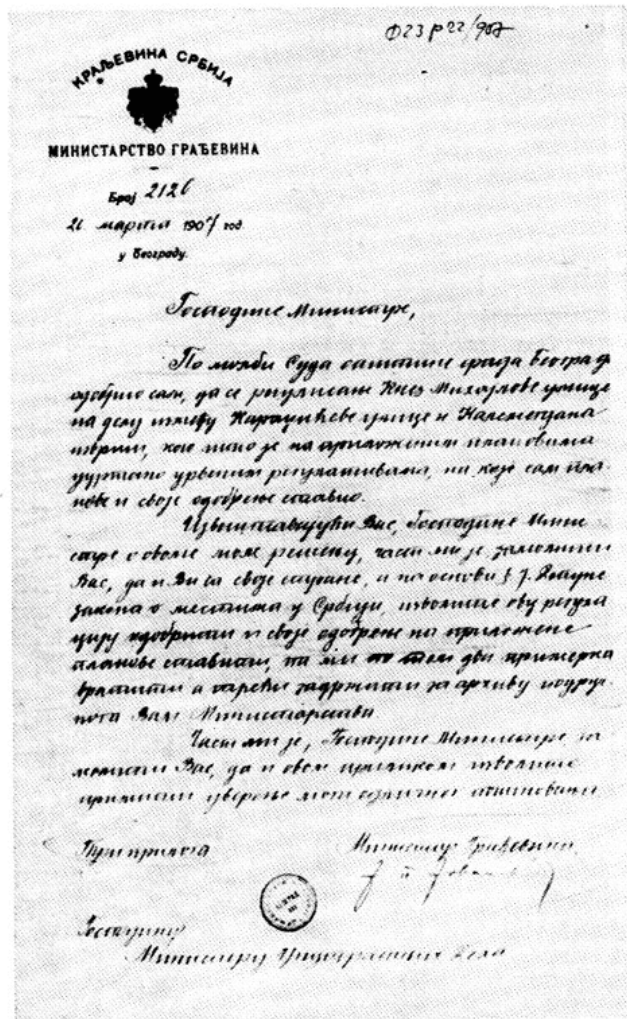 Ф23 р22/907
КРАЉЕВИНА СРБИЈА
МИНИСТАРСТВО ГРАЂЕВИНА
Број 2126
21 марта 1907 год.
у Београду.
Господине Министре,
По молби Суда општине града Београда
одобрио сам, да се регулисање Кнез Михајлове улице
на делу између Караџићеве улице и Калемегдана
изврши, као што је на приложеним плановима
цртано црвеним регулаткама, на које сам пла-
нове и своје одобрење ставио.
Извештавајући Вас, Господине Мини-
стре о овоме моме решењу, част ми је замолити
Вас, да и Ви са своје стране, а на основи § 7.
закона о местима у Србији, изволите ову регула-
цију одобрити и своје одобрење на приложене
планове ставити, па ми по том два примерка
вратити а трећи задржати за архиву подруч-
нога Вам Министарства.
Част ми је, Господине Министре за-
молити Вас, да и овом приликом изволите
примити уверење мога одличног поштовања
Три прилога
Министар Грађевина,
Господину
Министру Унутрашњих Дела